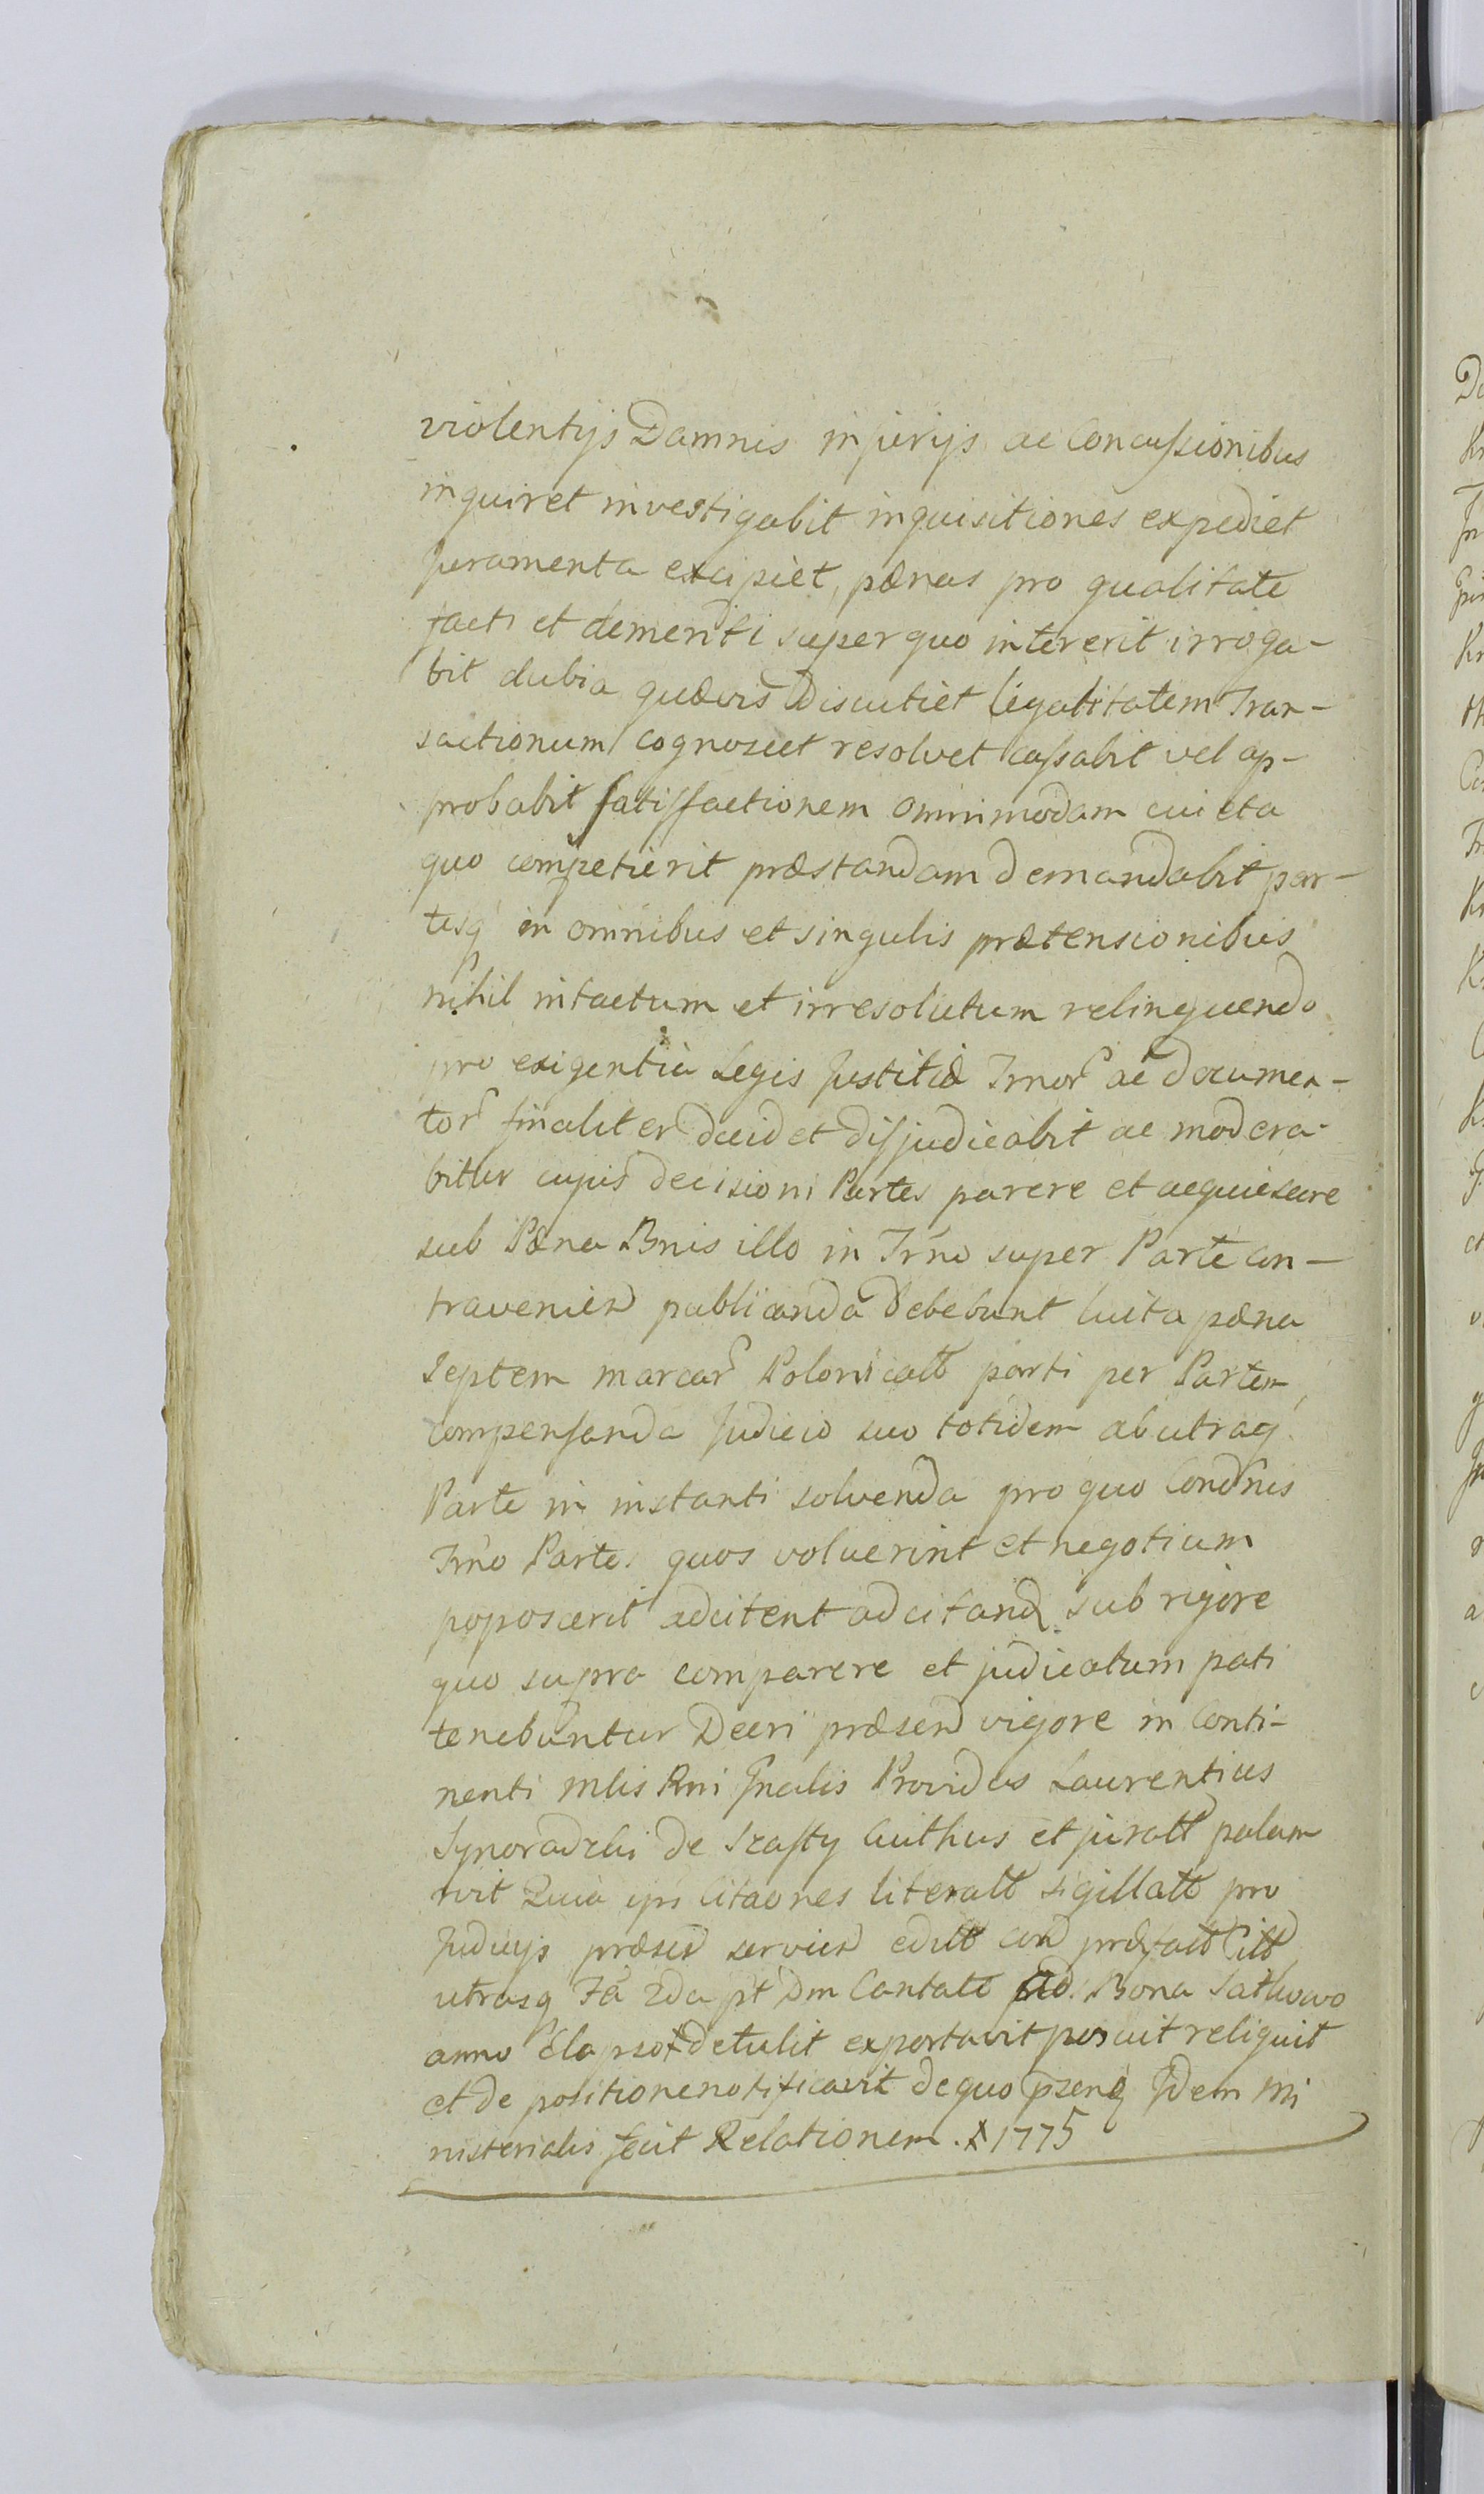 violentijs Damnis injurijs ac Concussionibus
inquiret investigabit inquisitiones expediet
Juramenta excipiet, pænas pro qualitate
facti et demeriti super quo intererit irroga-
bit dubia quævis Discutiet legalitatem Tran-
sactionum cognoscet resolvet cassabit vel ap-
probabit satisfactionem omnimodam cui et a
quo competierit præstandam demandabit par-
tesq in omnibus et singulis prætensionibus
nihil intactum et irresolutum relinquendo
pro exigentia Legis Justitiæ Trnor ac documen-
tor finaliter decidet disjudicabit ac modera-
bitur cujus decisioni Partes parere et acquiescere
sub Pæna Bnis illo in Trno super Parte con-
travenien publicanda debebunt luita pæna
septem marcar Polonicall parti per Partem
compensanda Judicio suo totidem ab utraq
Parte in instanti solvenda pro quo Condnis
Trno Partes quos voluerint et negotium
poposcerit adcitent adcitand sub rigore
quo supra comparere et judicatum pati
tenebuntur Decri præsen vigore in Conti-
nenti Mlis Rni Gnalis Providus Laurentius
de authus et juratt palam
Quia ipse Citaones literatt sigillatt pro
Judicijs præsen servien editt con præfatt
utrasq Fa 2da pt Dm Cantate ad Bona
anno Elapso detulit exportavit posuit reliquit
et de positione notificavit de quo Idem Mi
nisterialis fecit Relationem. 1775